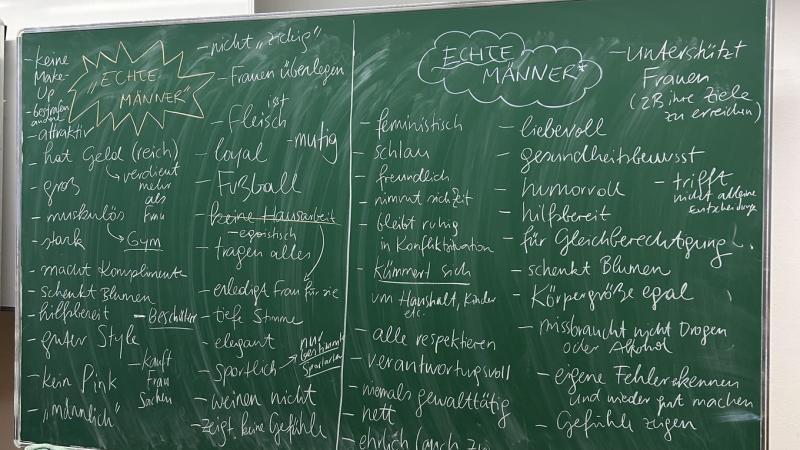 - keine
Make-
Up
- bestrafen
andere
- attraktiv
"ECHTE
MÄNNER"
- hat Geld (reich)
↳ verdient
mehr
als
Frau
- groß
- muskulös
↳ Gym
- stark
- macht Komplimente
- schenkt Blumen
- hilfsbereit
- Beschützer
- guter Style
- kauft
Frau
Sachen
- kein Pink
- "männlich"
- nicht "zickig"
- Frauen überlegen
- ist Fleisch
- mutig
- loyal
- Fußball
- keine Hausarbeit
- egoistisch
- tragen alles
- erledigt Frau für sie
- tiefe Stimme
- elegant
- sportlich → nur
bestimmte
Sportarten
- weinen nicht
- zeigt keine Gefühle
ECHTE
MÄNNER*
- unterstützt
Frauen
(z.B. ihre Ziele
zu erreichen)
- feministisch
- schlau
- freundlich
- nimmt sich Zeit
- bleibt ruhig
in Konfliktsituation
- kümmert sich
um Haushalt, Kinder
etc.
- alle respektieren
- verantwortungsvoll
- niemals gewalttätig
- nett
- ehrlich (auch zu
- liebevoll
- gesundheitsbewusst
- humorvoll
- trifft
nicht alleine
Entscheidungen
- hilfsbereit
- für Gleichberechtigung
- schenkt Blumen
- Körpergröße egal
- missbraucht nicht Drogen
oder Alkohol
- eigene Fehler erkennen
und wieder gut machen
- Gefühle zeigen